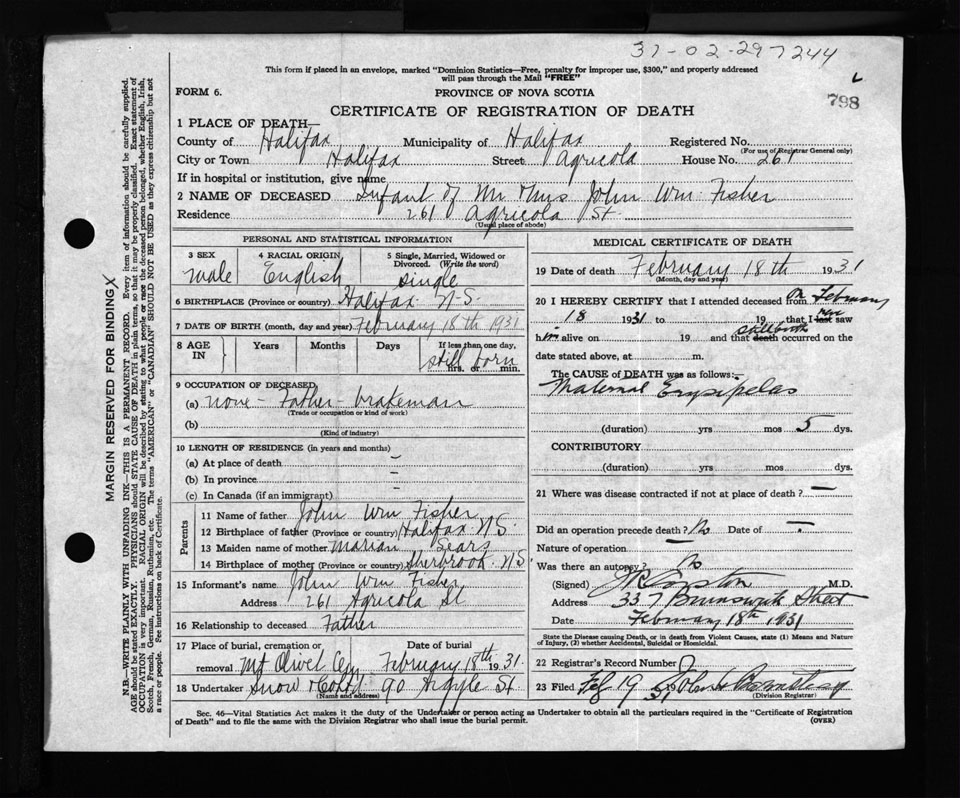 37-02-297244
This form if placed in an envelope, marked "Dominion Statistics—Free, penalty for improper use, $300," and properly addressed
will pass through the Mail "FREE"
798
FORM 6.
PROVINCE OF NOVA SCOTIA
CERTIFICATE OF REGISTRATION OF DEATH
1 PLACE OF DEATH—
County of Halifax Municipality of Halifax Registered No.
(For use of Registrar General only)
City or Town Halifax Street Agricola House No. 261
If in hospital or institution, give name
2 NAME OF DECEASED Infant of Mr & Mrs John Wm Fisher
Residence 261 Agricola St.
(Usual place of abode)
PERSONAL AND STATISTICAL INFORMATION
3 SEX 4 RACIAL ORIGIN 5 Single, Married, Widowed or
Divorced. (Write the word)
Male English Single
6 BIRTHPLACE (Province or country) Halifax N.S.
7 DATE OF BIRTH (month, day and year) February 18th 1931
8 AGE IN Years Months Days If less than one day,
still born
hrs. or min.
9 OCCUPATION OF DECEASED
(a) None - Father - brakeman
(Trade or occupation or kind of work)
(b)
(Kind of industry)
10 LENGTH OF RESIDENCE (in years and months)
(a) At place of death –
(b) In province –
(c) In Canada (if an immigrant) –
Parents
11 Name of father John Wm Fisher
12 Birthplace of father (Province or country) Halifax N.S.
13 Maiden name of mother Marian Sears
14 Birthplace of mother (Province or country) Sherbrook N.S
15 Informant's name John Wm Fisher
Address 261 Agricola St
16 Relationship to deceased Father
17 Place of burial, cremation or Date of burial
removal Mt Olivet Cem February 18th 1931.
18 Undertaker Snow & Co Ltd 90 Argyle St
(Name and address)
MEDICAL CERTIFICATE OF DEATH
19 Date of death February 18th 1931
(Month, day and year)
20 I HEREBY CERTIFY that I attended deceased from on February
18 1931 to 19 that I last saw
him alive on 19 and that death stillbirth occurred on the
date stated above, at m.
The CAUSE of DEATH was as follows:—
Maternal Erysipelas
(duration) yrs mos 5 dys.
CONTRIBUTORY
(duration) yrs mos dys.
21 Where was disease contracted if not at place of death? —
Did an operation precede death? No Date of –
Nature of operation —
Was there an autopsy? No
(Signed) M.D.
Address 337 Brunswick Street
Date February 18th 1931
State the Disease causing Death, or in death from Violent Causes, state (1) Means and Nature
of Injury, (2) whether Accidental, Suicidal or Homicidal.
22 Registrar's Record Number
23 Filed Feb 19 1931 John
(Division Registrar)
Sec. 46—Vital Statistics Act makes it the duty of the Undertaker or person acting as Undertaker to obtain all the particulars required in the "Certificate of Registration
of Death" and to file the same with the Division Registrar who shall issue the burial permit. (OVER)
MARGIN RESERVED FOR BINDING X
N.B.—WRITE PLAINLY WITH UNFADING INK—THIS IS A PERMANENT RECORD. Every item of information should be carefully supplied.
AGE should be stated EXACTLY. PHYSICIANS should STATE CAUSE OF DEATH in plain terms, so that it may be properly classified. Exact statement of
OCCUPATION is very important. RACIAL ORIGIN will be described by stating to what people or race the deceased person belonged, whether English, Irish,
Scotch, French, German, Russian, Ruthenian, etc. The terms "AMERICAN" or "CANADIAN" SHOULD NOT BE USED as they express citizenship but not
a race or people. See instructions on back of Certificate.